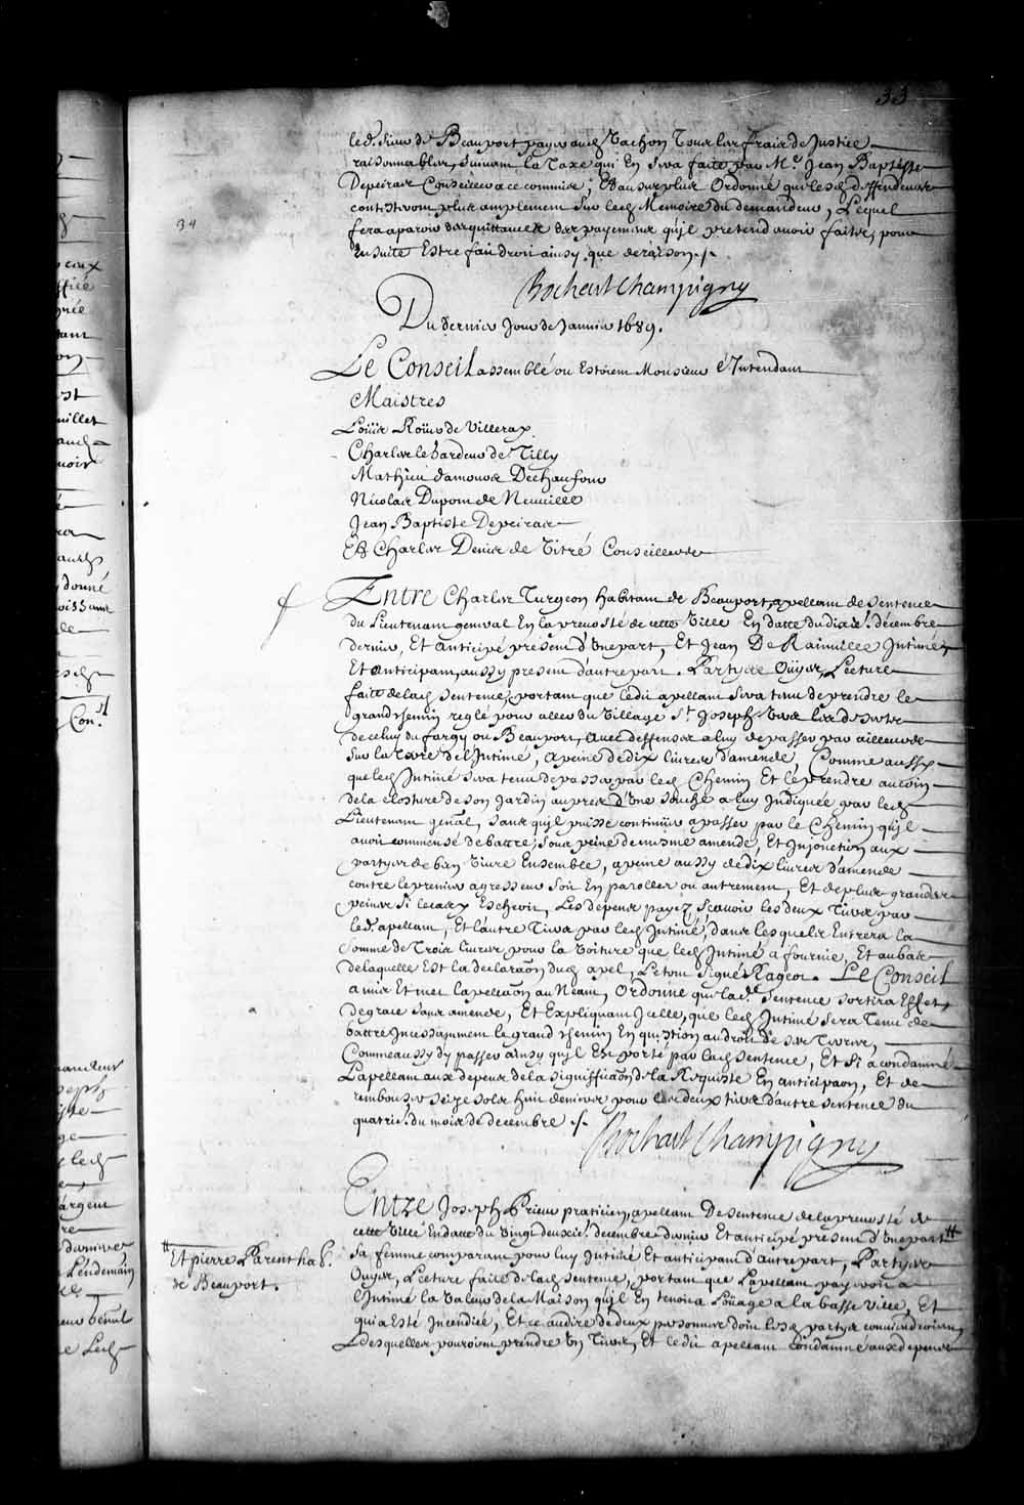 33
led. Sieur de Beauport payer aud. Vachon Tous les frais de Justice
raisonnables, suivant la Taxe qui En sera faite par Me. Jean Baptiste
Depeiras Conseiller a ce commis; Et au surplus Ordonné que lesd. deffendeurs
contesteront plus amplement sur lesd. Memoires du demandeur, Lequel
fera aparoir des quittances des payemens qu'jl pretend avoir faites, pour
Ensuite Estre fait droit ainsy que de raison ./.
Bochart Champigny
34
Du dernier Jour de Janvier 1689.
Le Conseil assemblé ou Estoient Monsieur l'Intendant
Maistres
Loüis Roüer de Villeray
Charles le Gardeur de Tilly
Mathieu damours Deschaufour
Nicolas Dupont de Neuville
Jean Baptiste Depeiras
Et Charles Denis de Vitré Conseillers
Entre Charles Turgeon habitant de Beauport, apellant de sentence
du Lieutenant general En la prevosté de cette Ville En datte du dixe. décembre
dernier, Et Anticipé present d'Une part, Et Jean De Rainville Intimé
Et Anticipant, aussy present d'autre part. Partyes Ouyes, Lecture
faite de lad. sentence, portant que ledit apellant sera tenu de prendre le
grand chemin reglé pour aller du Village St. Joseph
de celuy du fargy ou Beauport, avec deffenses a luy de passer par ailleurs
sur la terre de l'Intimé, a peine de dix livres d'amende, Comme aussy
que led. Intimé sera tenu de passer par led. Chemin Et le prendre au coin
de la closture de son Jardin aupres d'Une souche a luy Indiquée par led.
Lieutenant genal, sans qu'jl puisse continuer a passer par le Chemin qu'jl
avoit commensé de battre, sous peine de mesme amende, Et Injonction aux
partyes de bien Vivre Ensemble, a peine aussy de dix livres d'amende
contre le premier agresseur soit En parolles ou autrement, Et de plus grandes
peines si le cas y Escheoit, Les depens payez Scavoir les deux tiers par
led. apellant, Et l'autre Tiers par led. Intimé, dans lesquels Entrera la
somme de Trois livres pour la voiture que led. Intimé a fournie, Et au bas
de laquelle Est la declaraon dud. apel, Le tout signé Rageot. Le Conseil
a mis Et met l'apellaon au Neant, Ordonne que lad. Sentence sortira Effet,
de grace sans amende, Et Expliquant Jcelle, que led. Intimé sera Tenu de
battre Jncessamment le grand chemin En question au droit de ses Terres,
Comme aussy dy passer ainsy qu'jl Est porté par lad. sentence, Et si a condamné
Lapellant aux depens de la signiffiaon de la Requeste En anticipaon, Et de
rembourser seize sols huit deniers pour les deux tiers d'autre sentence du
quatrie. du mois de decembre ./.
Bochart Champigny
Entre Joseph Prieur praticien, apellant De sentence de la prevosté de
cette Ville En datte du Vingt deuxie. decembre dernier Et anticipé present d'Une part #
# Et pierre Parent hab.
de Beauport.
Sa femme comparant pour luy Intimé Et anticipant d'autre part, Partyes
Ouyes, Lecture faite de lad. sentence, portant que Lapellant payeroit a
l'Intimé la Valeur de la Maison qu'jl En tenoit a Loüage a la basse Ville, Et
qui a Esté Incendiée, Et ce au dire de deux personnes dont lesd. partyes conviendroient
Lesquelles pouroient prendre Un Tiers, Et ledit apellant Condamné aux depens